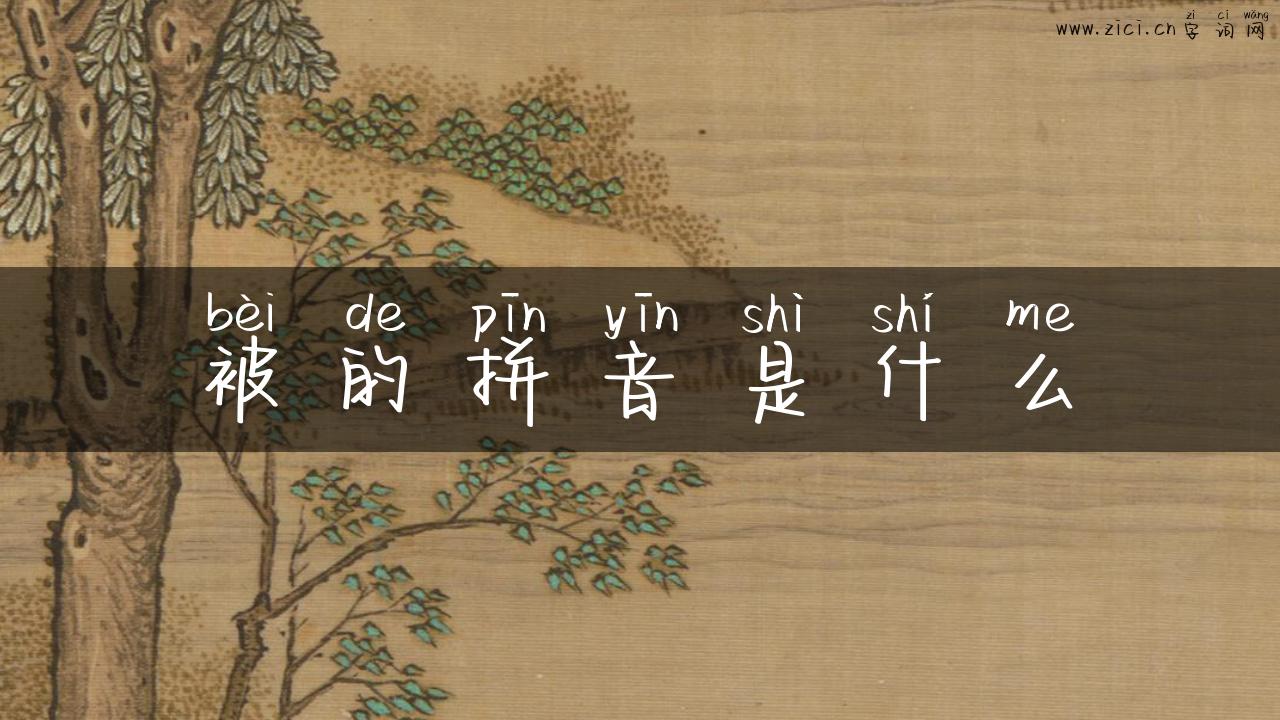 zì cí wǎng
www.zici.cn 字词网
bèi de pīn yīn shì shí me
被的拼音是什么